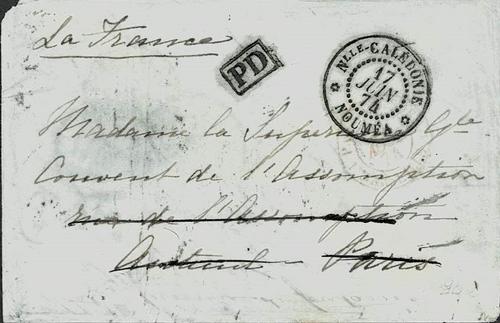 La France
PD
Nlle-CALEDONIE
17
JUIN
74
NOUMÉA
Madame la Supérieure Gle
Couvent de l'Assomption
rue de l'Assomption
Auteuil - Paris